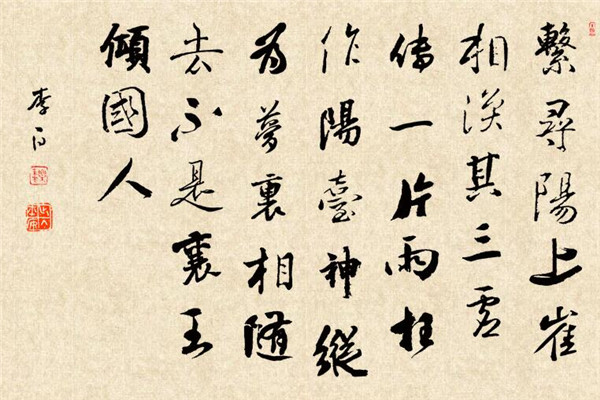 繫尋陽上崔
相渙其三虛
傳一片雨枉
作陽臺神縱
為夢裏相隨
去不是襄王
傾國人
李白